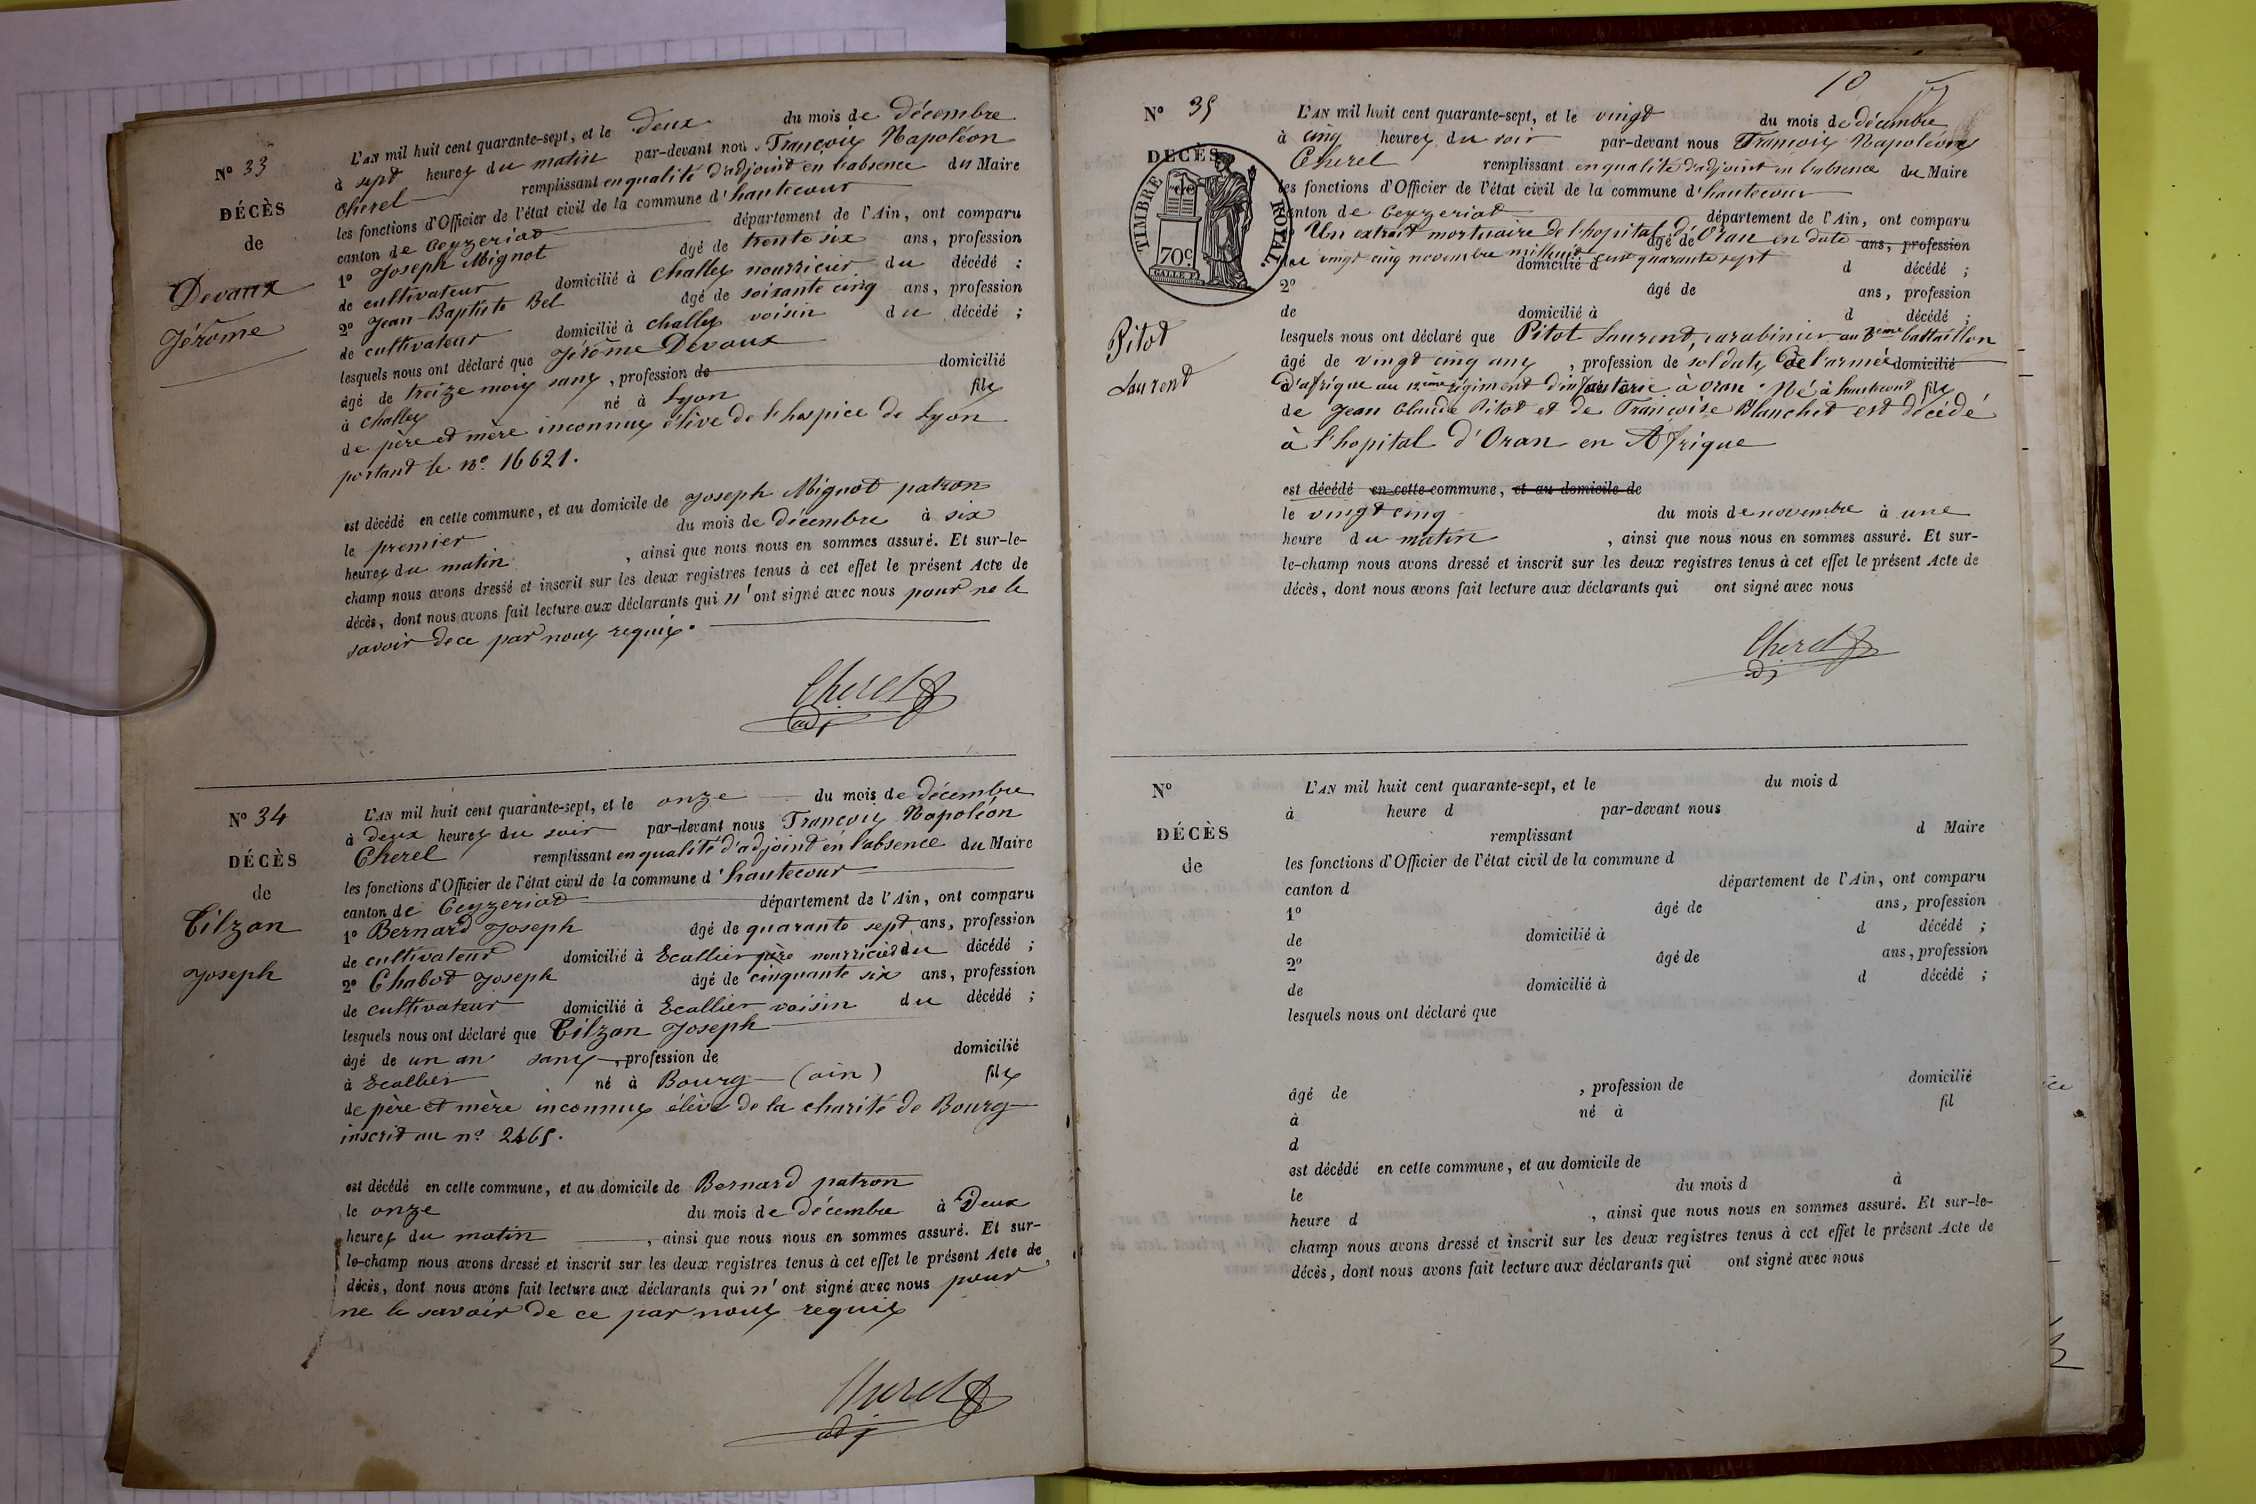 N° 33
DÉCÈS
de
Devaux
Jérôme
L'AN mil huit cent quarante-sept, et le deux du mois de décembre
à sept heures du matin par-devant nous François Napoléon
Cherel remplissant en qualité d'adjoint en l'absence du Maire
les fonctions d'Officier de l'état civil de la commune d'hautecour
canton de Ceyzeriat département de l'Ain, ont comparu
1° Joseph Mignot âgé de trente six ans, profession
de cultivateur domicilié à Challes nourricier du décédé ;
2° Jean-Baptiste Bel âgé de soixante cinq ans, profession
de cultivateur domicilié à challes voisin du décédé ;
lesquels nous ont déclaré que Jérôme Devaux
âgé de treize mois sans, profession de domicilié
à challes né à Lyon fils
de père et mère inconnus élève de l'hospice de Lyon
portant le n° 16621.
est décédé en cette commune, et au domicile de Joseph Mignot patron
le premier du mois de décembre à six
heures du matin, ainsi que nous nous en sommes assuré. Et sur-le-
champ nous avons dressé et inscrit sur les deux registres tenus à cet effet le présent Acte de
décès, dont nous avons fait lecture aux déclarants qui n'ont signé avec nous pour ne le
savoir de ce par nous requis.
Cherel
adj
N° 34
DÉCÈS
de
Tilzan
Joseph
L'AN mil huit cent quarante-sept, et le onze du mois de décembre
à deux heures du soir par-devant nous François Napoléon
Cherel remplissant en qualité d'adjoint en l'absence du Maire
les fonctions d'Officier de l'état civil de la commune d'hautecour
canton de Ceyzeriat département de l'Ain, ont comparu
1° Bernard Joseph âgé de quarante sept ans, profession
de cultivateur domicilié à Ecallier père nourricier du décédé ;
2° Chabot Joseph âgé de cinquante six ans, profession
de cultivateur domicilié à Ecallier voisin du décédé ;
lesquels nous ont déclaré que Tilzan Joseph
âgé de un an sans, profession de domicilié
à Ecallier né à Bourg (ain) fils
de père et mère inconnus élève de la charité de Bourg
inscrit au n° 2465.
est décédé en cette commune, et au domicile de Bernard patron
le onze du mois de décembre à Deux
heures du matin, ainsi que nous nous en sommes assuré. Et sur-
le-champ nous avons dressé et inscrit sur les deux registres tenus à cet effet le présent Acte de
décès, dont nous avons fait lecture aux déclarants qui n'ont signé avec nous pour
ne le savoir de ce par nous requis
Cherel
adj
10
N° 35
DÉCÈS
de
TIMBRE ROYAL
70c
Pitot
Laurent
L'AN mil huit cent quarante-sept, et le vingt du mois de décembre
à cinq heures du soir par-devant nous François Napoléon
Cherel remplissant en qualité d'adjoint en l'absence du Maire
les fonctions d'Officier de l'état civil de la commune d'hautecour
canton de Ceyzeriat département de l'Ain, ont comparu
Un extrait mortuaire de l'hopital d'Oran en date âgé de ans, profession
du vingt cinq novembre mil huit cent quarante sept domicilié d d décédé ;
2° âgé de ans, profession
de domicilié à d décédé ;
lesquels nous ont déclaré que Pitot Laurent, carabinier au 8ème battaillon
âgé de vingt cinq ans, profession de soldat, de l'armée domicilié
d'afrique au 12ème régiment d'infanterie à Oran. Né à hautecour fils
de Jean Claude Pitot et de Françoise Blanchet est décédé
à l'hopital d'Oran en Afrique
est décédé en cette commune, et au domicile de
le vingt cinq du mois de novembre à une
heure du matin, ainsi que nous nous en sommes assuré. Et sur-
le-champ nous avons dressé et inscrit sur les deux registres tenus à cet effet le présent Acte de
décès, dont nous avons fait lecture aux déclarants qui ont signé avec nous
Cherel
adj
N°
DÉCÈS
de
L'AN mil huit cent quarante-sept, et le du mois d
à heure d par-devant nous
remplissant d Maire
les fonctions d'Officier de l'état civil de la commune d
canton d département de l'Ain, ont comparu
1° âgé de ans, profession
de domicilié à d décédé ;
2° âgé de ans, profession
de domicilié à d décédé ;
lesquels nous ont déclaré que
âgé de , profession de domicilié
à né à fil
d
est décédé en cette commune, et au domicile de
le du mois d à
heure d , ainsi que nous nous en sommes assuré. Et sur-le-
champ nous avons dressé et inscrit sur les deux registres tenus à cet effet le présent Acte de
décès, dont nous avons fait lecture aux déclarants qui ont signé avec nous